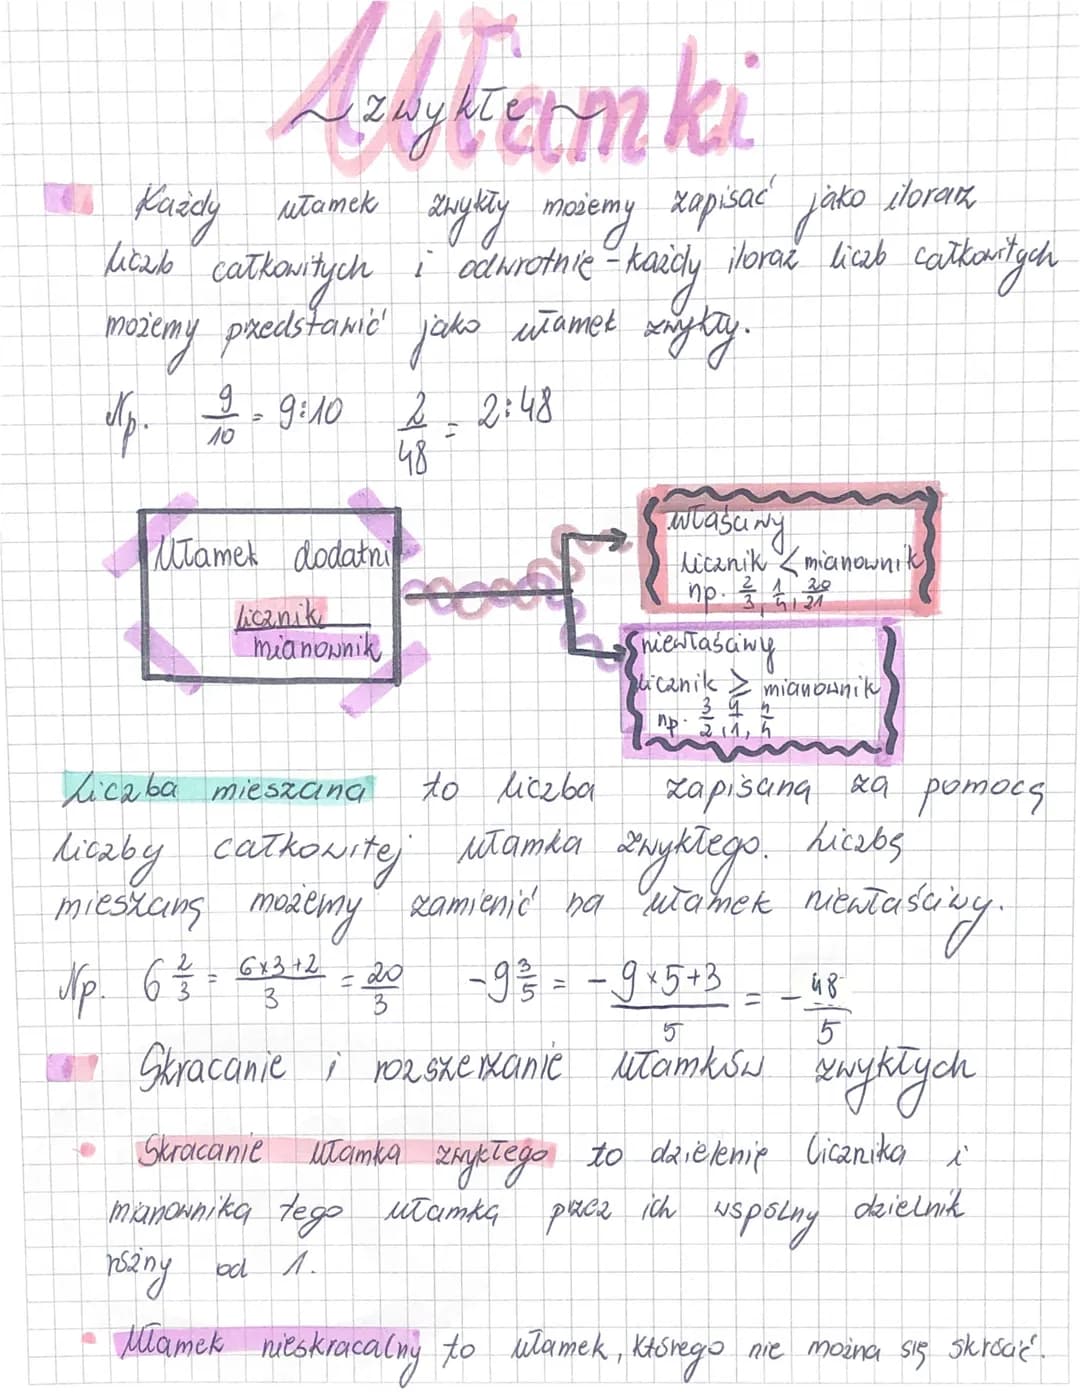 Ułamki
~ zwykłe ~
Każdy ułamek zwykły możemy zapisać jako iloraz
liczb całkowitych i odwrotnie - każdy iloraz liczb całkowitych
możemy przedstawić jako ułamek zwykły.
Np. 9/10 = 9:10 2/48 = 2:48
Ułamek dodatni
licznik
mianownik
właściwy
licznik < mianownik
np. 2/3, 1/4, 20/21
niewłaściwy
licznik ⩾ mianownik
np. 3/2, 4/1, 4/4
Liczba mieszana to liczba zapisana za pomocą
liczby całkowitej ułamka zwykłego. Liczbę
mieszaną możemy zamienić na ułamek niewłaściwy.
Np. 6 2/3 = 6×3+2/3 = 20/3 -9 3/5 = - 9×5+3/5 = - 48/5
Skracanie i rozszerzanie ułamków zwykłych
• Skracanie ułamka zwykłego to dzielenie licznika i
mianownika tego ułamka przez ich wspólny dzielnik
różny od 1.
• Ułamek nieskracalny to ułamek, którego nie można się skrócić.